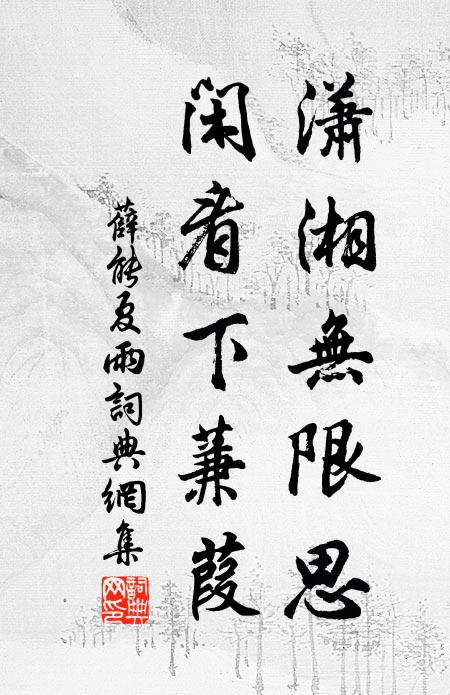 瀟湘無限思
閑看下蒹葭
薛能夏雨詞典網集
詞典